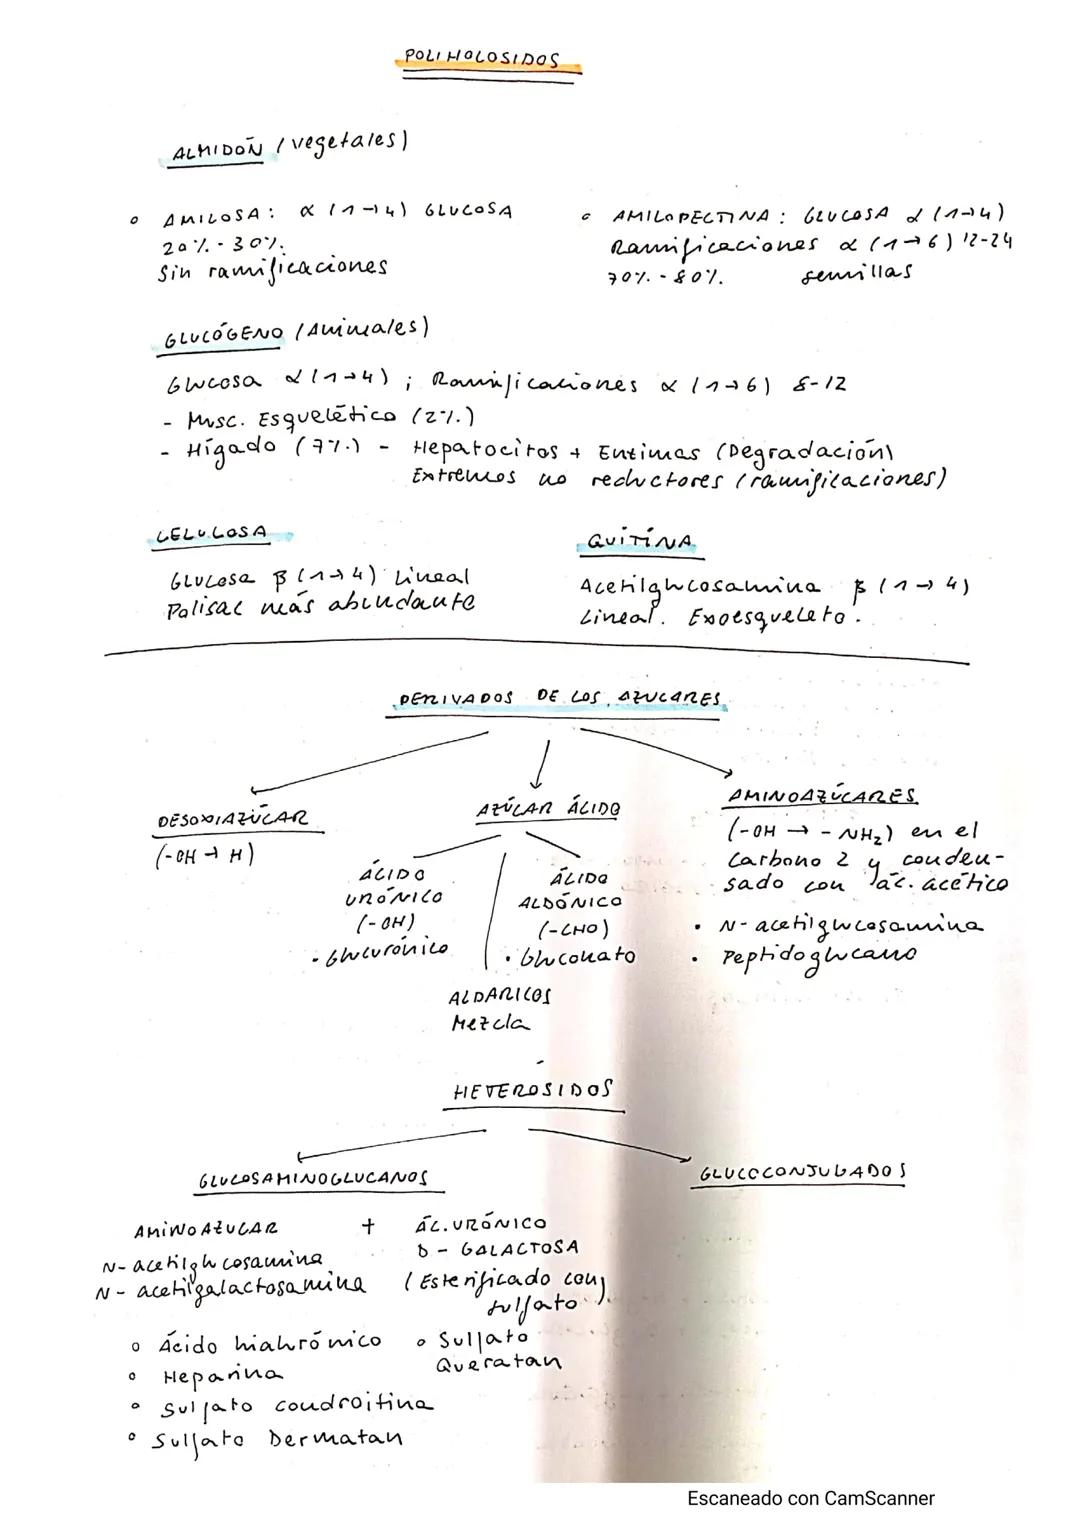 POLIHOLOSIDOS
ALMIDÓN (vegetales)
◦ AMILOSA: α (1→4) GLUCOSA
20%-30%.
Sin ramificaciones
◦ AMILOPECTINA: GLUCOSA α (1→4)
Ramificaciones α (1→6) 12-24
70%.-80%. semillas
GLUCÓGENO (Animales)
Glucosa α(1→4); Ramificaciones α (1→6) 8-12
- Musc. Esquelético (2%.)
- Hígado (7%.) - Hepatocitos + Enzimas (Degradación)
Extremos no reductores (ramificaciones)
CELULOSA
Glucosa β(1→4) Lineal
Polisac más abundante
QUITÍNA
Acetilglucosamina β (1→4)
Lineal. Exoesqueleto.
DERIVADOS DE LOS AZUCARES
DESOXIAZÚCAR
(-OH → H)
AZÚCAR ÁCIDO
ÁCIDO
URÓNICO
(-OH)
• Glucurónico
ÁCIDO
ALDÓNICO
(-CHO)
• Gluconato
ALDARICOS
Mezcla
AMINOAZÚCARES
(-OH → -NH₂) en el
Carbono 2 y conden-
sado con ác. acético
• N-acetilglucosamina
• Peptidoglucano
HETEROSIDOS
GLUCOSAMINOGLUCANOS
AMINOAZUCAR + ÁC. URÓNICO
N-acetilglucosamina D-GALACTOSA
N-acetilgalactosamina (Esterificado con
sulfato)
◦ Ácido hialurónico
◦ Heparina
◦ Sulfato condroitina
◦ Sulfato Dermatan
◦ Sulfato
Queratan
GLUCOCONJUGADOS
Escaneado con CamScanner